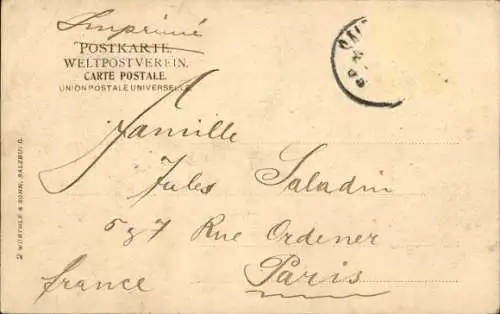 Imprimé
POSTKARTE.
WELTPOSTVEREIN.
CARTE POSTALE.
UNION POSTALE UNIVERSELLE.
Famille
Jules Saladin
Rue Ordener
Paris
france
WÜRTHLE & SOHN, SALZBURG.